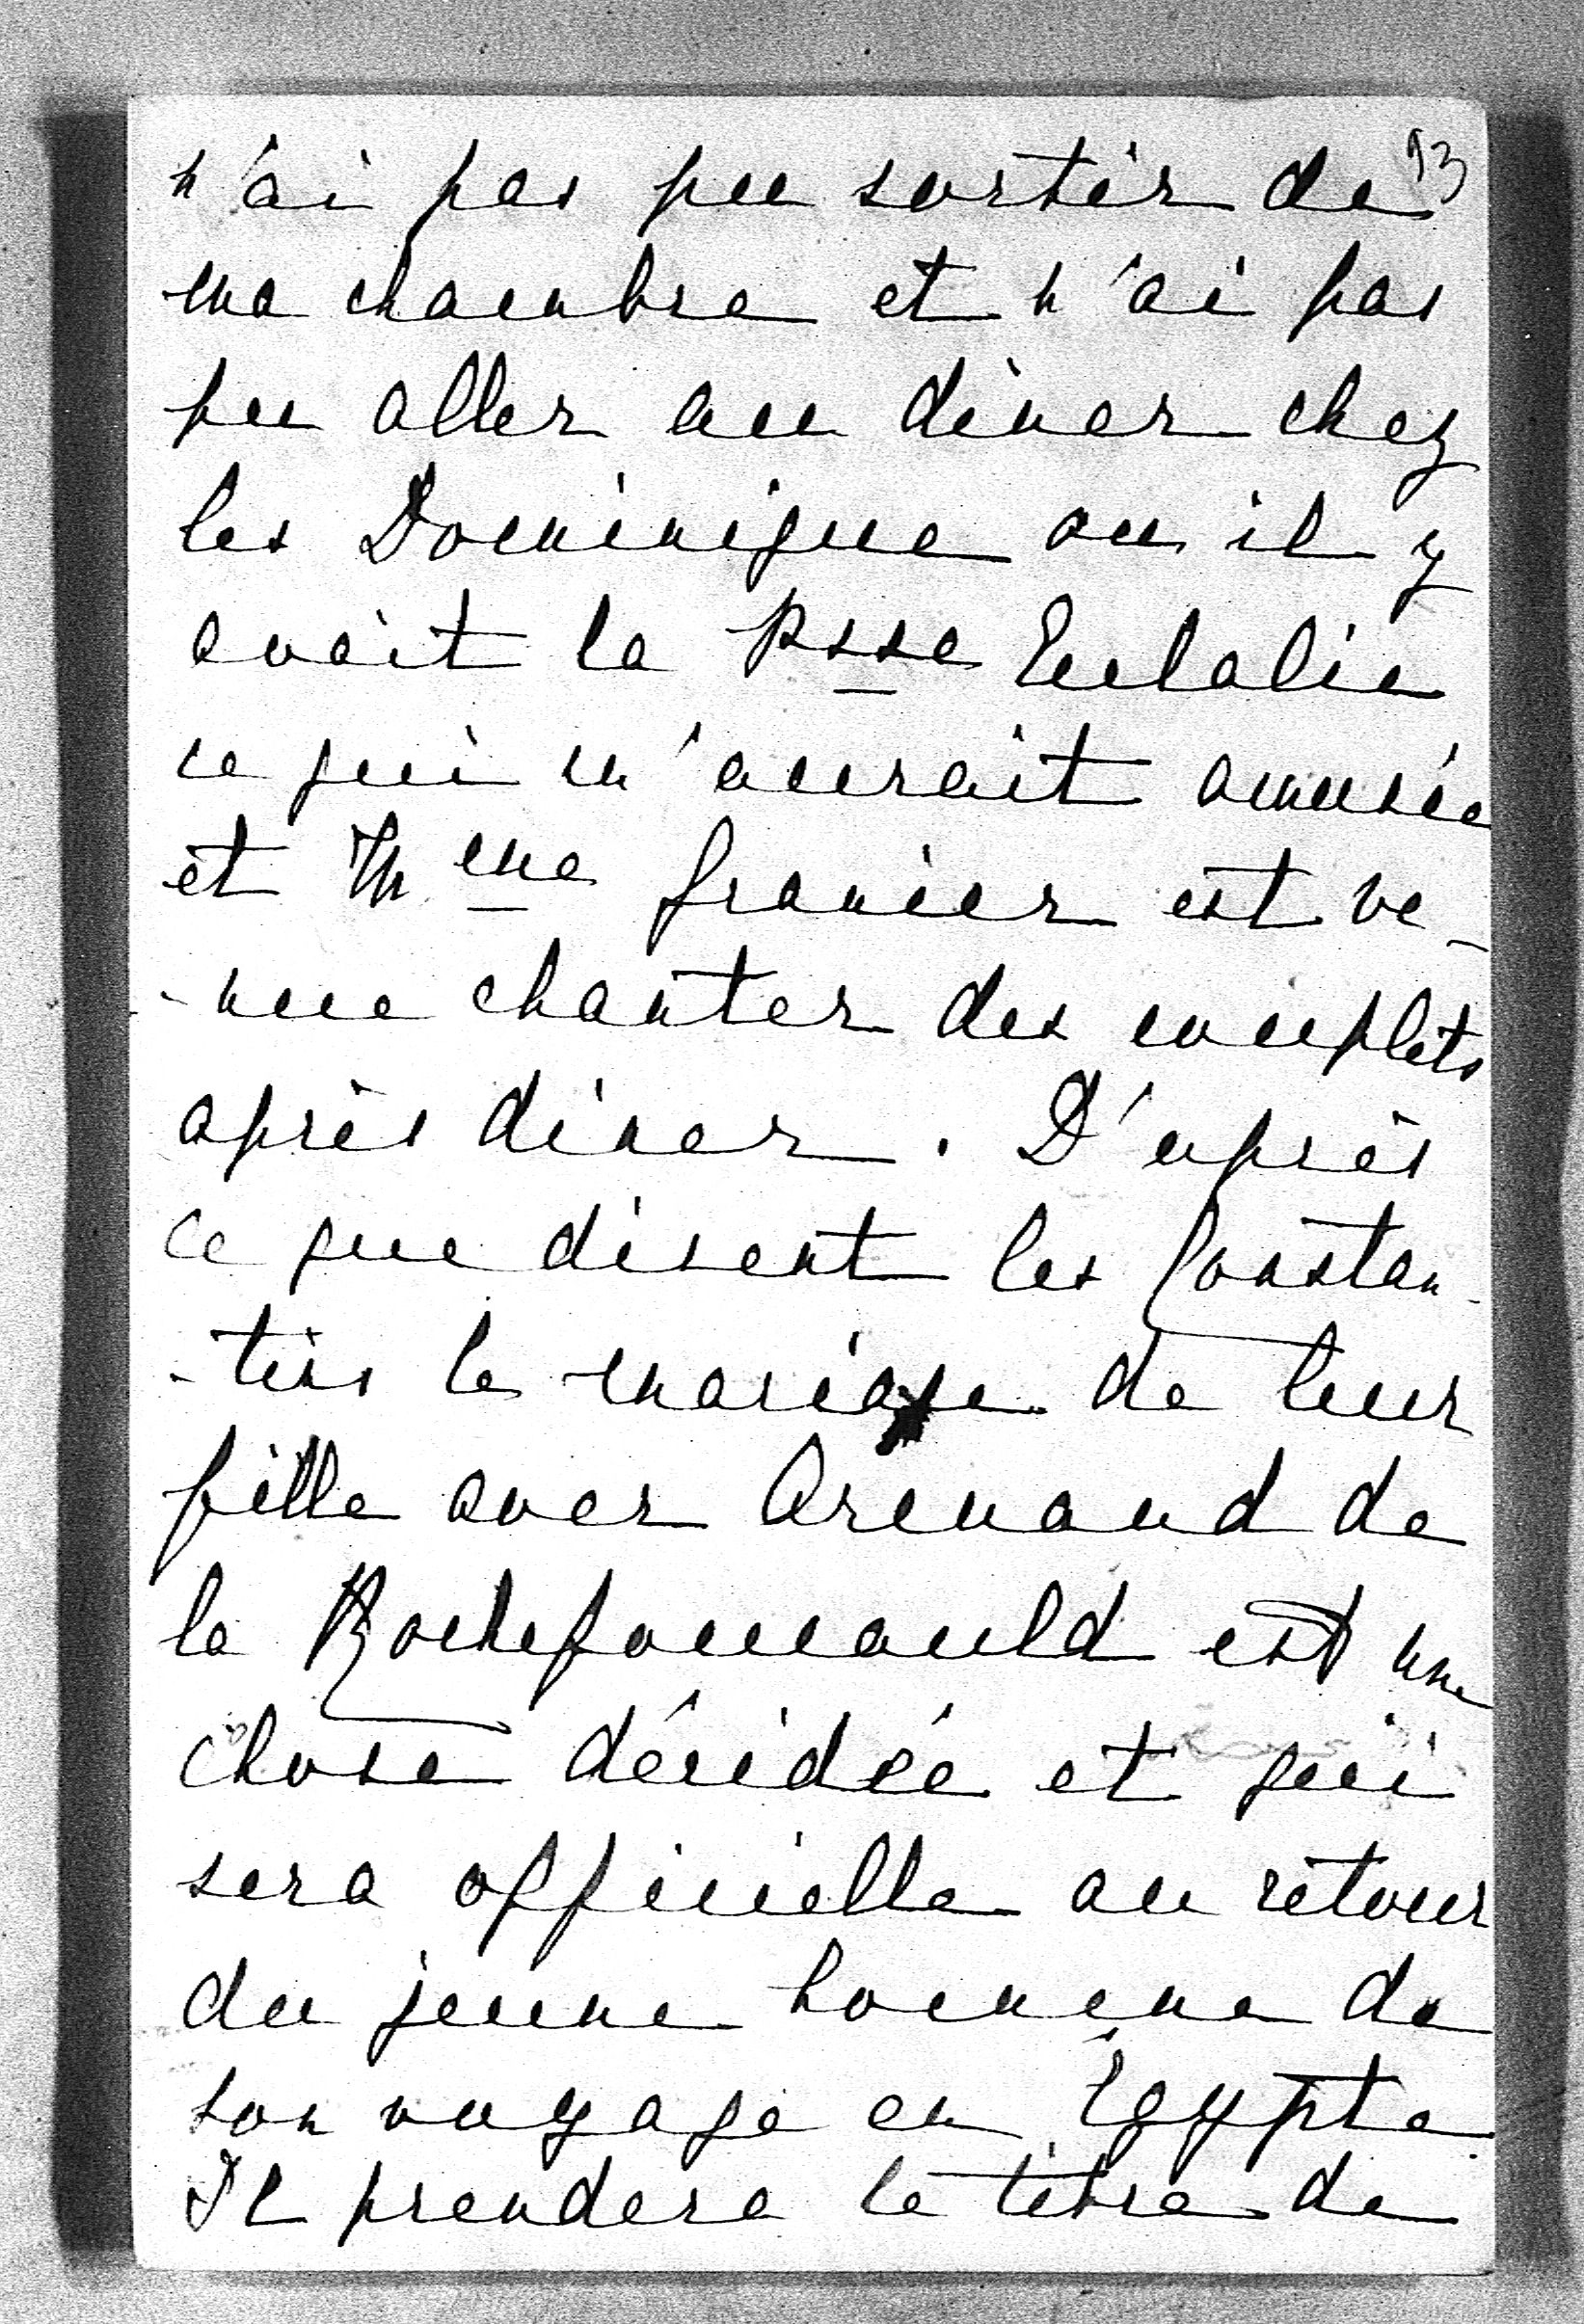 93
n'ai pas pu sortir de
ma chambre et n'ai pas
pu aller au diner chez
les Dominique ou il y
avait la Psse Eulalie
ce qui m'aurait amusée
et Mme Granier est ve-
-nue chanter des couplets
après diner. D'après
ce que disent les Constan-
-tins le mariage de leur
fille avec Armand de
la Rochefoucauld est une
chose décidée et qui
sera officielle au retour
du jeune homme de
son voyage en Egypte.
Il prendera le titre de